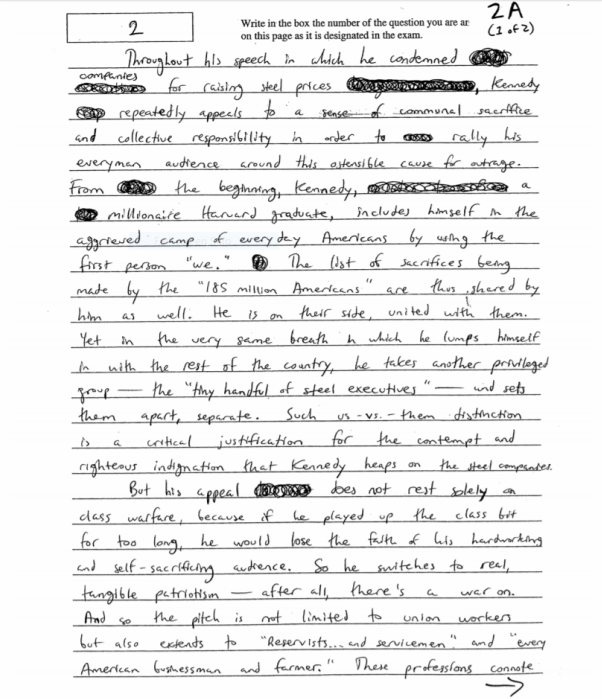 2
Write in the box the number of the question you are ar
on this page as it is designated in the exam.
2A
(1 of 2)
Throughout his speech in which he condemned
companies
for raising steel prices, Kennedy
repeatedly appeals to a sense of communal sacrifice
and collective responsibility in order to rally his
everyman audience around this ostensible cause for outrage.
From the beginning, Kennedy, a
millionaire Harvard graduate, includes himself in the
aggrieved camp of everyday Americans by using the
first person "we." The list of sacrifices being
made by the "185 million Americans" are thus shared by
him as well. He is on their side, united with them.
Yet in the very same breath in which he lumps himself
in with the rest of the country, he takes another privileged
group — the "tiny handful of steel executives" — and sets
them apart, separate. Such us-vs.-them distinction
is a critical justification for the contempt and
righteous indignation that Kennedy heaps on the steel companies.
But his appeal does not rest solely on
class warfare, because if he played up the class bit
for too long, he would lose the faith of his hardworking
and self-sacrificing audience. So he switches to real,
tangible patriotism — after all, there's a war on.
And so the pitch is not limited to union workers
but also extends to "Reservists... and servicemen" and "every
American businessman and farmer." These professions connote